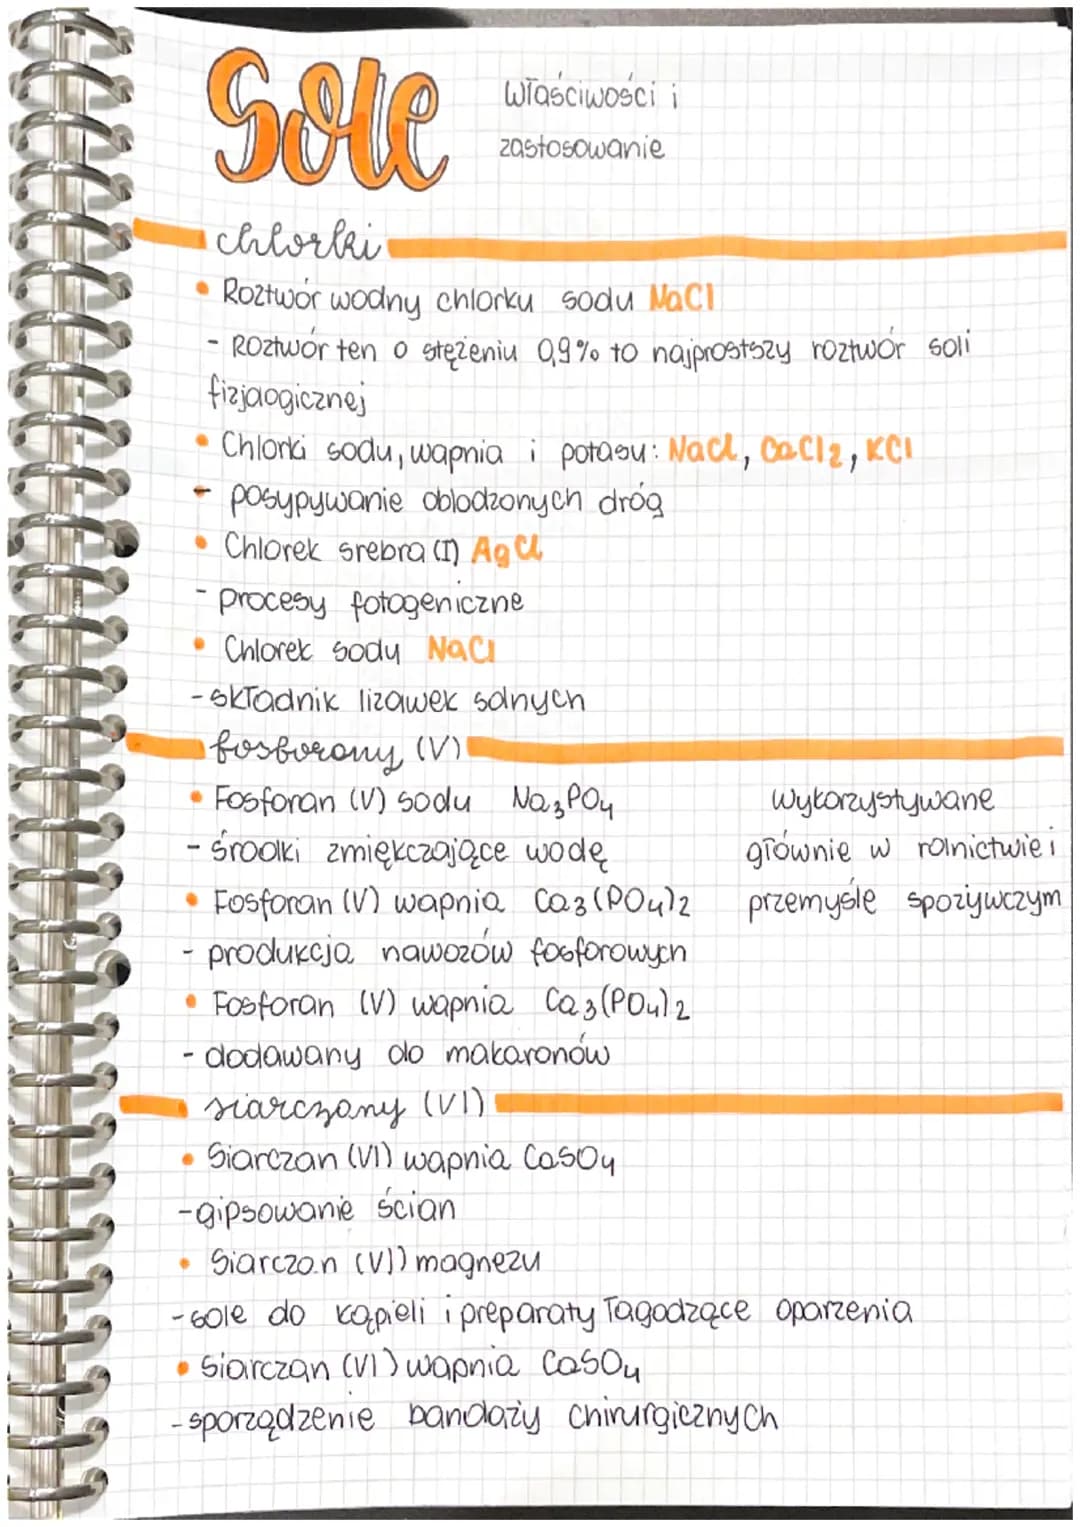 Sole
Właściwości i
zastosowanie
chlorki
• Roztwór wodny chlorku sodu NaCl
- Roztwór ten o stężeniu 0,9% to najprostszy roztwór soli
fizjologicznej
• Chlorki sodu, wapnia i potasu: NaCl, CaCl2, KCl
- posypywanie oblodzonych dróg
• Chlorek srebra (I) AgCl
- procesy fotogeniczne
• Chlorek sodu NaCl
- składnik lizawek solnych
fosforany (V)
• Fosforan (V) sodu Na3PO4
- środki zmiękczające wodę
• Fosforan (V) wapnia Ca3(PO4)2
- produkcja nawozów fosforowych
• Fosforan (V) wapnia Ca3(PO4)2
- dodawany do makaronów
wykorzystywane
głównie w rolnictwie i
przemyśle spożywczym
siarczany (VI)
• Siarczan (VI) wapnia CaSO4
- gipsowanie ścian
• Siarczan (VI) magnezu
- sole do kąpieli i preparaty łagodzące oparzenia
• Siarczan (VI) wapnia CaSO4
- sporządzenie bandaży chirurgicznych